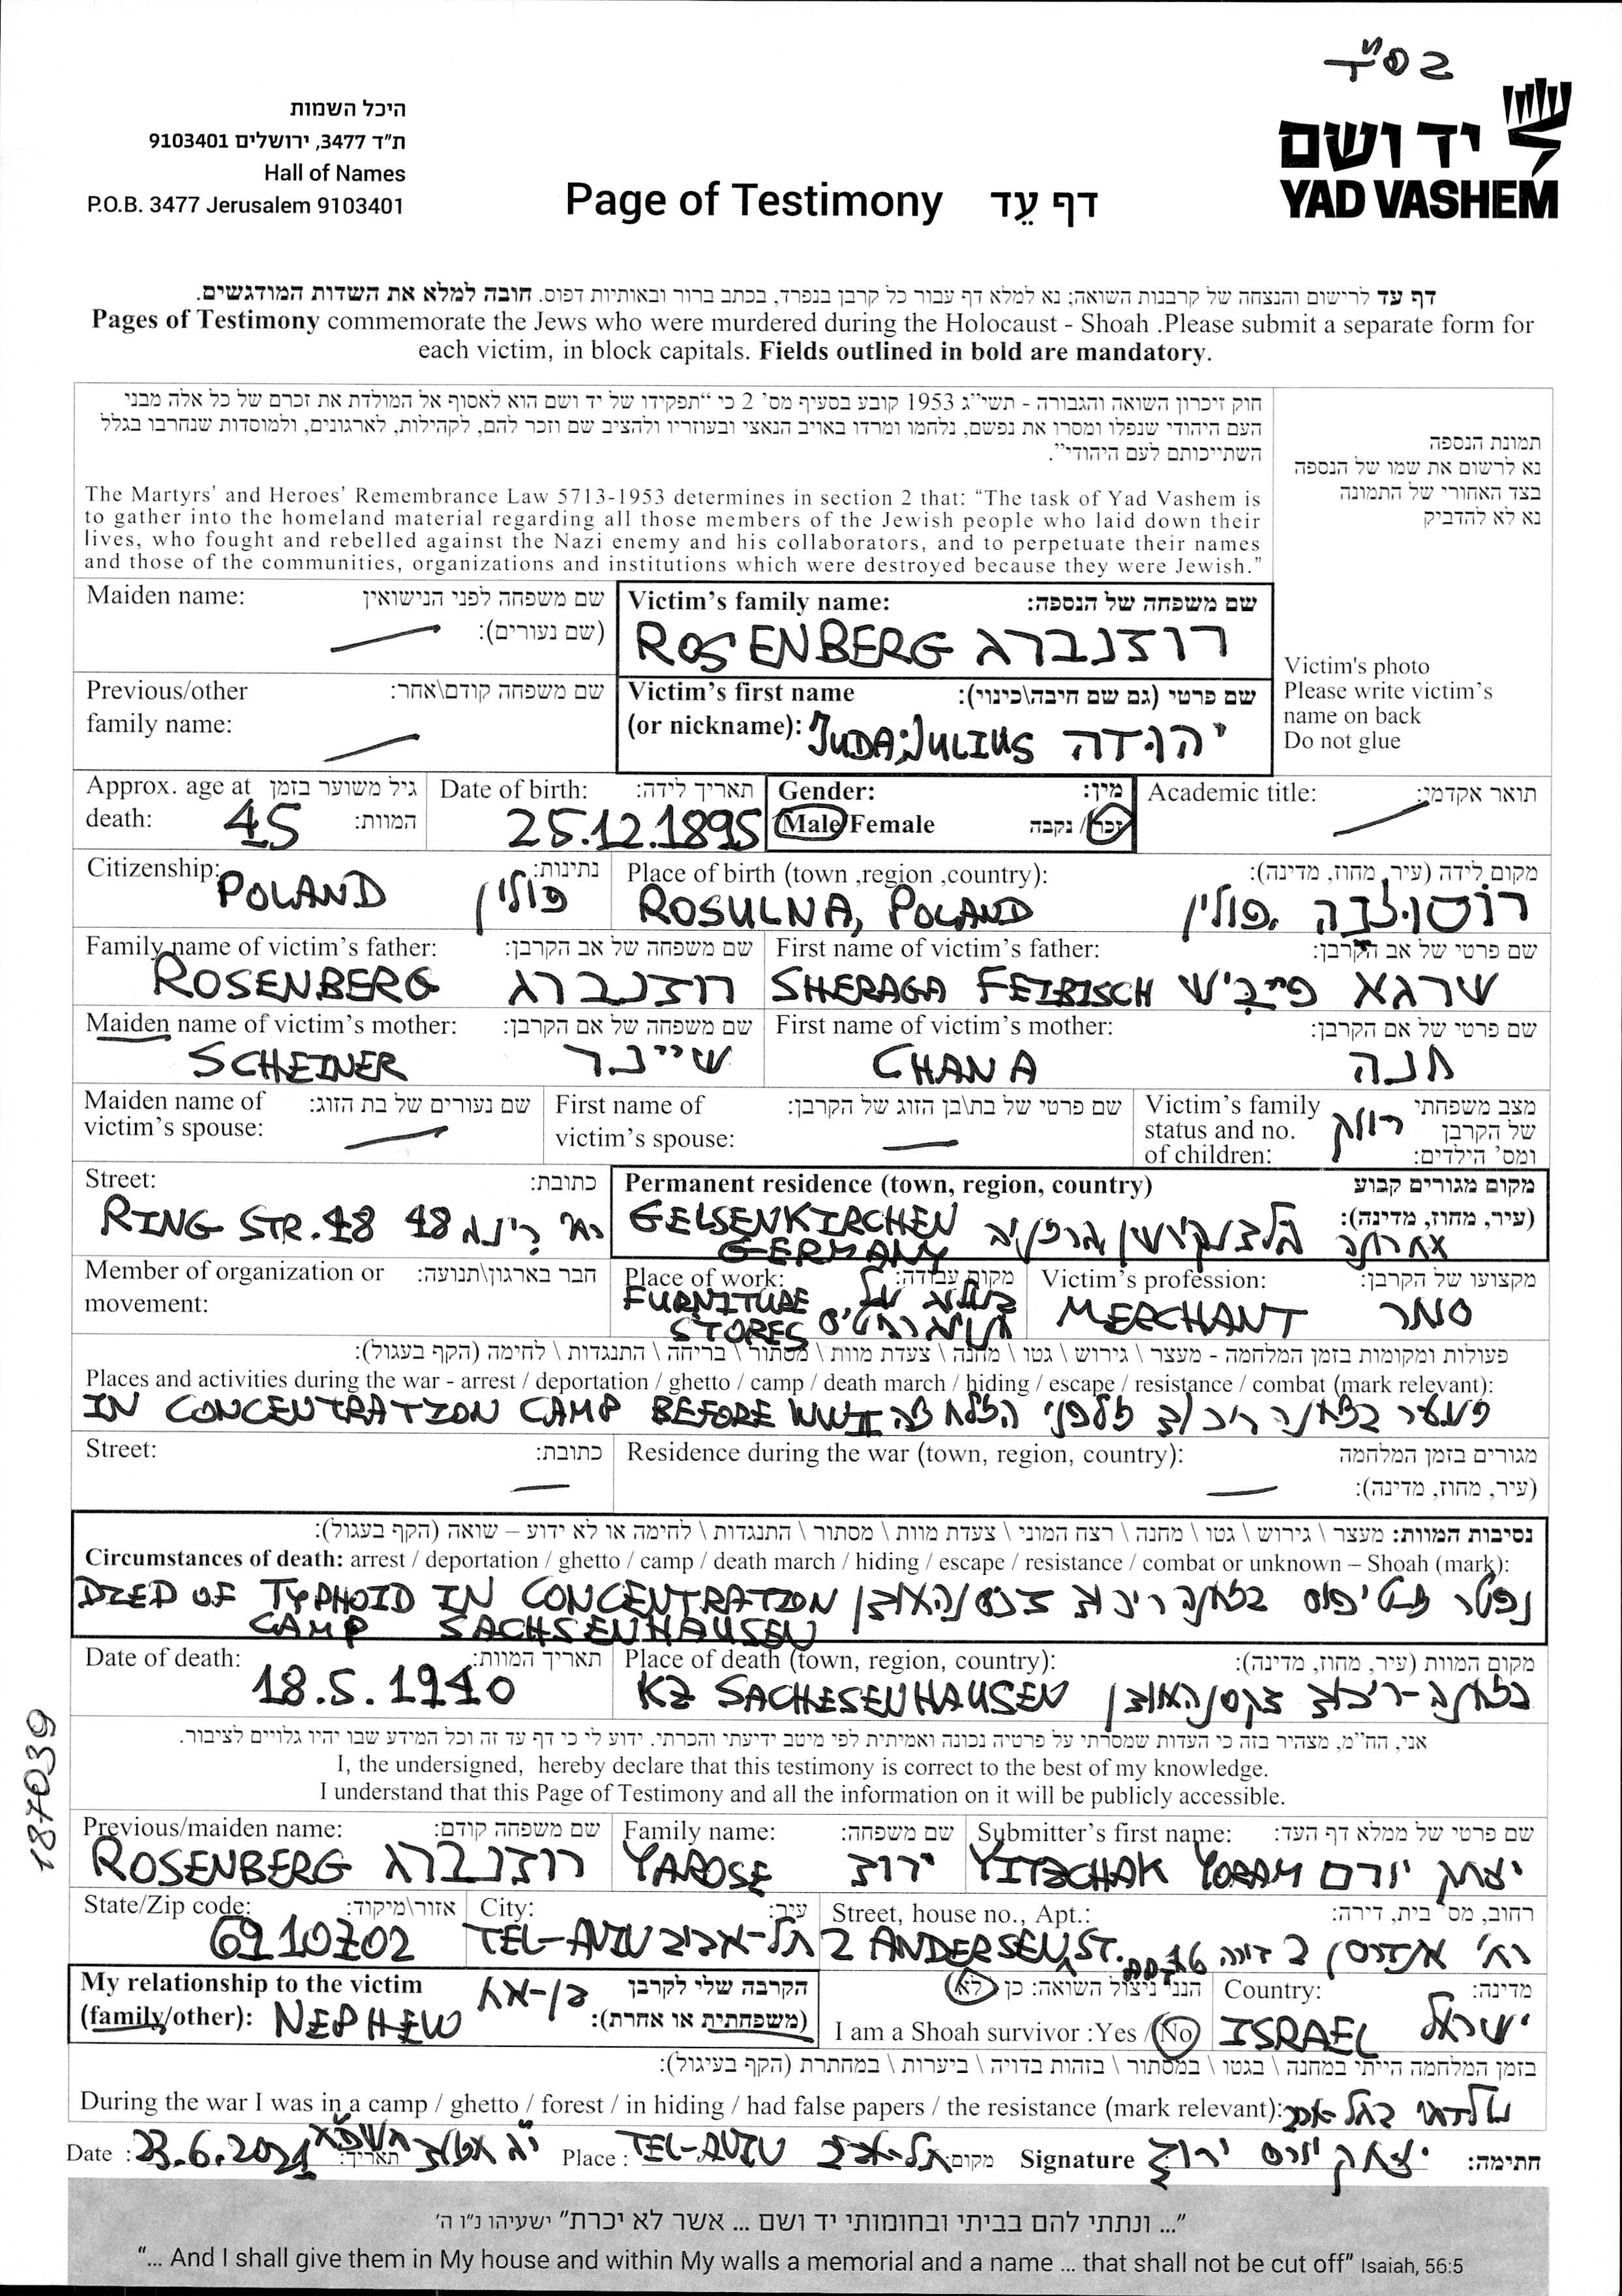 בס"ד
היכל השמות
ת"ד 3477, ירושלים 9103401
Hall of Names
P.O.B. 3477 Jerusalem 9103401
Page of Testimony דף עֵד
יד ושם
YAD VASHEM
דף עד לרישום והנצחה של קרבנות השואה; נא למלא דף עבור כל קרבן בנפרד, בכתב ברור ובאותיות דפוס. חובה למלא את השדות המודגשים.
Pages of Testimony commemorate the Jews who were murdered during the Holocaust - Shoah .Please submit a separate form for
each victim, in block capitals. Fields outlined in bold are mandatory.
חוק זיכרון השואה והגבורה - תשי"ג 1953 קובע בסעיף מס' 2 כי "תפקידו של יד ושם הוא לאסוף אל המולדת את זכרם של כל אלה מבני
העם היהודי שנפלו ומסרו את נפשם, נלחמו ומרדו באויב הנאצי ובעוזריו ולהציב שם וזכר להם, לקהילות, לארגונים, ולמוסדות שנחרבו בגלל
השתייכותם לעם היהודי".
The Martyrs' and Heroes' Remembrance Law 5713-1953 determines in section 2 that: "The task of Yad Vashem is
to gather into the homeland material regarding all those members of the Jewish people who laid down their
lives, who fought and rebelled against the Nazi enemy and his collaborators, and to perpetuate their names
and those of the communities, organizations and institutions which were destroyed because they were Jewish."
תמונת הנספה
נא לרשום את שמו של הנספה
בצד האחורי של התמונה
נא לא להדביק
Victim's photo
Please write victim's
name on back
Do not glue
Maiden name: שם משפחה לפני הנישואין
(שם נעורים):
Victim's family name: שם משפחה של הנספה:
ROSENBERG רוזנברג
Previous/other שם משפחה קודם\אחר:
family name:
Victim's first name שם פרטי (גם שם חיבה\כינוי):
(or nickname): JUDA;JULIUS יהודה
Approx. age at גיל משוער בזמן
death: 45 המוות:
Date of birth: תאריך לידה:
25.12.1895
Gender: מין:
Male/Female זכר/ נקבה
Academic title: תואר אקדמי:
Citizenship: נתינות:
POLAND פולין
Place of birth (town ,region ,country): מקום לידה (עיר, מחוז, מדינה):
ROSULNA, POLAND פולין
Family name of victim's father: שם משפחה של אב הקרבן:
ROSENBERG רוזנברג
First name of victim's father: שם פרטי של אב הקרבן:
SHERAGA FEIBISCH שרגא פייביש
Maiden name of victim's mother: שם משפחה של אם הקרבן:
SCHEINER שיינר
First name of victim's mother: שם פרטי של אם הקרבן:
CHANA חנה
Maiden name of שם נעורים של בת הזוג:
victim's spouse:
First name of שם פרטי של בת\בן הזוג של הקרבן:
victim's spouse:
Victim's family מצב משפחתי
status and no. של הקרבן
of children: ומס' הילדים:
רווק
Street: כתובת:
RING STR.48 רח' רינג 48
Permanent residence (town, region, country) מקום מגורים קבוע
(עיר, מחוז, מדינה):
GELSENKIRCHEN גלזנקירשן גרמניה
GERMANY
Member of organization or חבר בארגון\תנועה:
movement:
Place of work: מקום עבודה:
FURNITURE
STORES
Victim's profession: מקצועו של הקרבן:
MERCHANT סוחר
פעולות ומקומות בזמן המלחמה - מעצר \ גירוש \ גטו \ מחנה \ צעדת מוות \ מסתור \ בריחה \ התנגדות \ לחימה (הקף בעגול):
Places and activities during the war - arrest / deportation / ghetto / camp / death march / hiding / escape / resistance / combat (mark relevant):
IN CONCENTRATION CAMP BEFORE WWII במחנה ריכוז לפני
Street: כתובת:
Residence during the war (town, region, country): מגורים בזמן המלחמה
(עיר, מחוז, מדינה):
נסיבות המוות: מעצר \ גירוש \ גטו \ מחנה \ רצח המוני \ צעדת מוות \ מסתור \ התנגדות \ לחימה או לא ידוע – שואה (הקף בעגול):
Circumstances of death: arrest / deportation / ghetto / camp / death march / hiding / escape / resistance / combat or unknown – Shoah (mark):
DIED OF TYPHOID IN CONCENTRATION נפטר מטיפוס במחנה ריכוז זכסנהאוזן
CAMP SACHSENHAUSEN
Date of death: תאריך המוות:
18.5.1940
Place of death (town, region, country): מקום המוות (עיר, מחוז, מדינה):
KZ SACHESENHAUSEN במחנה-ריכוז זקסנהאוזן
אני, הח"מ, מצהיר בזה כי העדות שמסרתי על פרטיה נכונה ואמיתית לפי מיטב ידיעתי והכרתי. ידוע לי כי דף עד זה וכל המידע שבו יהיו גלויים לציבור.
I, the undersigned, hereby declare that this testimony is correct to the best of my knowledge.
I understand that this Page of Testimony and all the information on it will be publicly accessible.
187039
Previous/maiden name: שם משפחה קודם:
ROSENBERG רוזנברג
Family name: שם משפחה:
YAROSE ירוז
Submitter's first name: שם פרטי של ממלא דף העד:
YITZCHAK YORAM יצחק יורם
State/Zip code: אזור\מיקוד:
6910702
City: עיר:
TEL-AVIV תל-אביב
Street, house no., Apt.: רחוב, מס' בית, דירה:
2 ANDERSEN ST. רח' אנדרסן 2 דירה 16
My relationship to the victim הקרבה שלי לקרבן
(family/other): NEPHEW בן-אח (משפחתית או אחרת):
הנני ניצול השואה: כן / לא
I am a Shoah survivor :Yes / No
Country: מדינה:
ISRAEL ישראל
בזמן המלחמה הייתי במחנה \ בגטו \ במסתור \ בזהות בדויה \ ביערות \ במחתרת (הקף בעיגול):
During the war I was in a camp / ghetto / forest / in hiding / had false papers / the resistance (mark relevant): נולדתי בתל-אביב
Date : 23.6.2021 תאריך: י"ג תמוז תשפ"א Place : TEL-AVIV תל-אביב מקום Signature יצחק יורם ירוז חתימה:
"... ונתתי להם בביתי ובחומותי יד ושם ... אשר לא יכרת" ישעיהו נ"ו ה'
"... And I shall give them in My house and within My walls a memorial and a name ... that shall not be cut off" Isaiah, 56:5